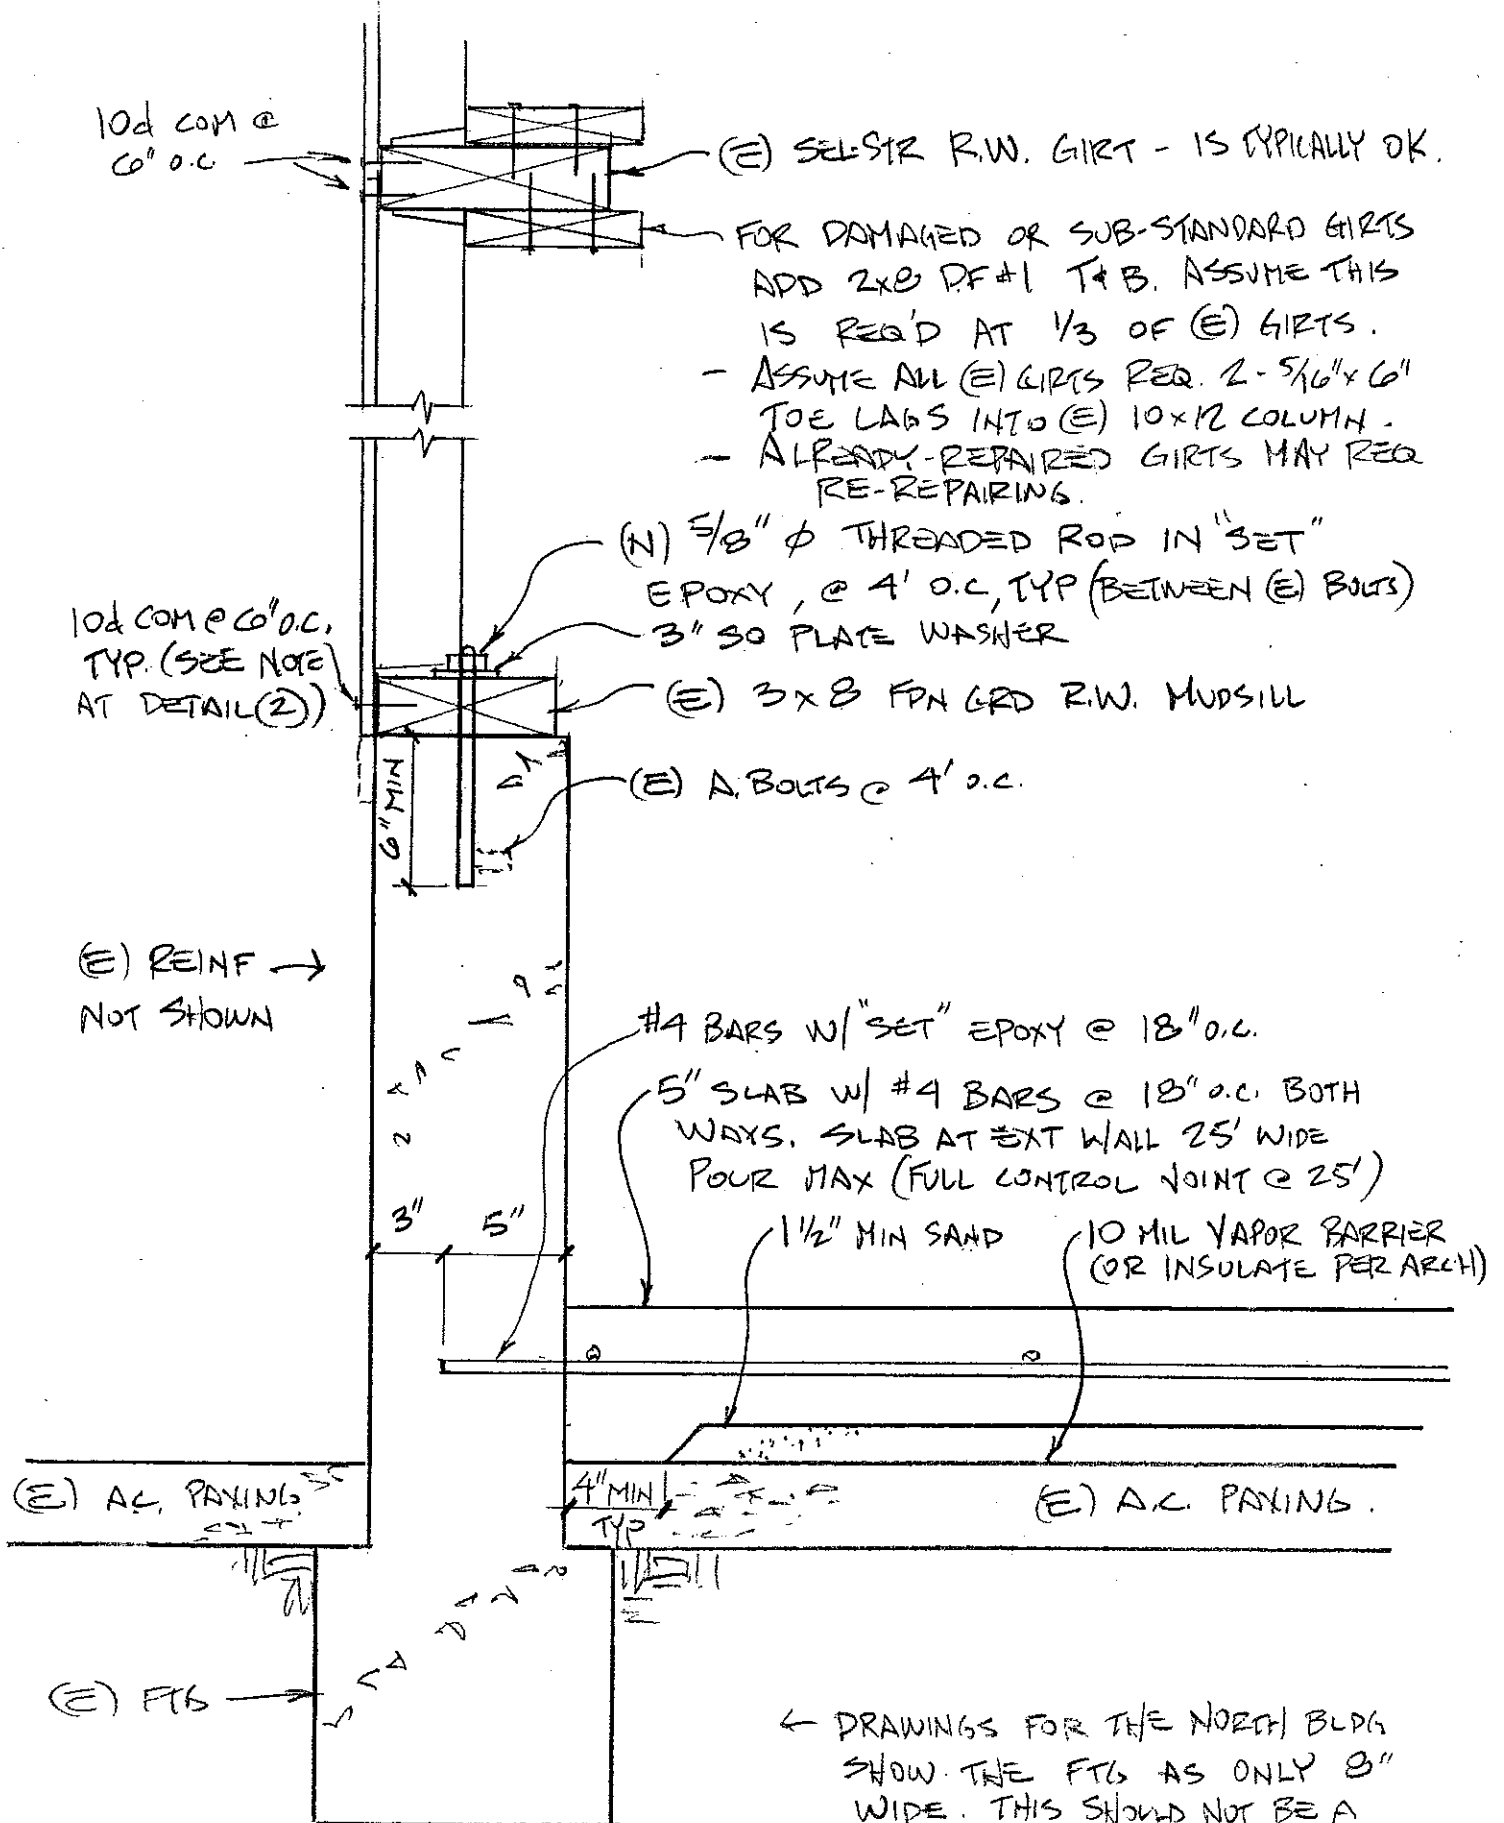 10d COM @
6" O.C
(E) SEL-STR R.W. GIRT - IS TYPICALLY OK.
FOR DAMAGED OR SUB-STANDARD GIRTS
ADD 2x8 DF#1 T&B. ASSUME THIS
IS REQ'D AT 1/3 OF (E) GIRTS.
- ASSUME ALL (E) GIRTS REQ. 2-5/16"x6"
TOE LAGS INTO (E) 10x12 COLUMN.
- ALREADY-REPAIRED GIRTS MAY REQ
RE-REPAIRING.
(N) 5/8" Φ THREADED ROD IN "SET"
EPOXY, @ 4' O.C, TYP (BETWEEN (E) BOLTS)
3" SQ PLATE WASHER
10d COM @ 6" O.C,
TYP. (SEE NOTE
AT DETAIL (2))
(E) 3x8 FDN GRD R.W. MUDSILL
6" MIN
(E) A. BOLTS @ 4' O.C.
(E) REINF →
NOT SHOWN
#4 BARS W/ "SET" EPOXY @ 18" O.C.
5" SLAB W/ #4 BARS @ 18" O.C. BOTH
WAYS. SLAB AT EXT WALL 25' WIDE
POUR MAX (FULL CONTROL JOINT @ 25')
3" 5"
1 1/2" MIN SAND
10 MIL VAPOR BARRIER
(OR INSULATE PER ARCH)
(E) A.C. PAVING
4" MIN
TYP
(E) A.C. PAVING.
(E) FTG
← DRAWINGS FOR THE NORTH BLDG
SHOW THE FTG AS ONLY 8"
WIDE. THIS SHOULD NOT BE A